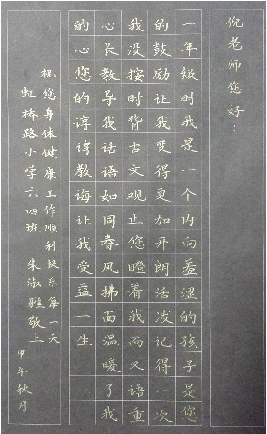 倪老师您好：
一年级时我是一个内向羞涩的孩子是您
的鼓励让我变得更加开朗活泼记得一次
我没按时背古文观止您瞪着我而又语重
心长教导我话语如同春风拂面温暖了我
的心您的谆谆教诲让我受益一生
祝您身体健康工作顺利快乐每一天
虹桥路小学六四班 朱淑雅敬上
甲午秋月